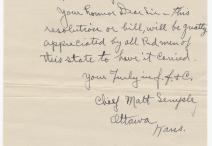 Your Honor Dear Sir - this
resolution or bill, will be greatly
appreciated by all Redmen of
this state to have it carried.
Yours Truly in f. f. & C.
Chief Matt Semple
Ottawa
Kans.